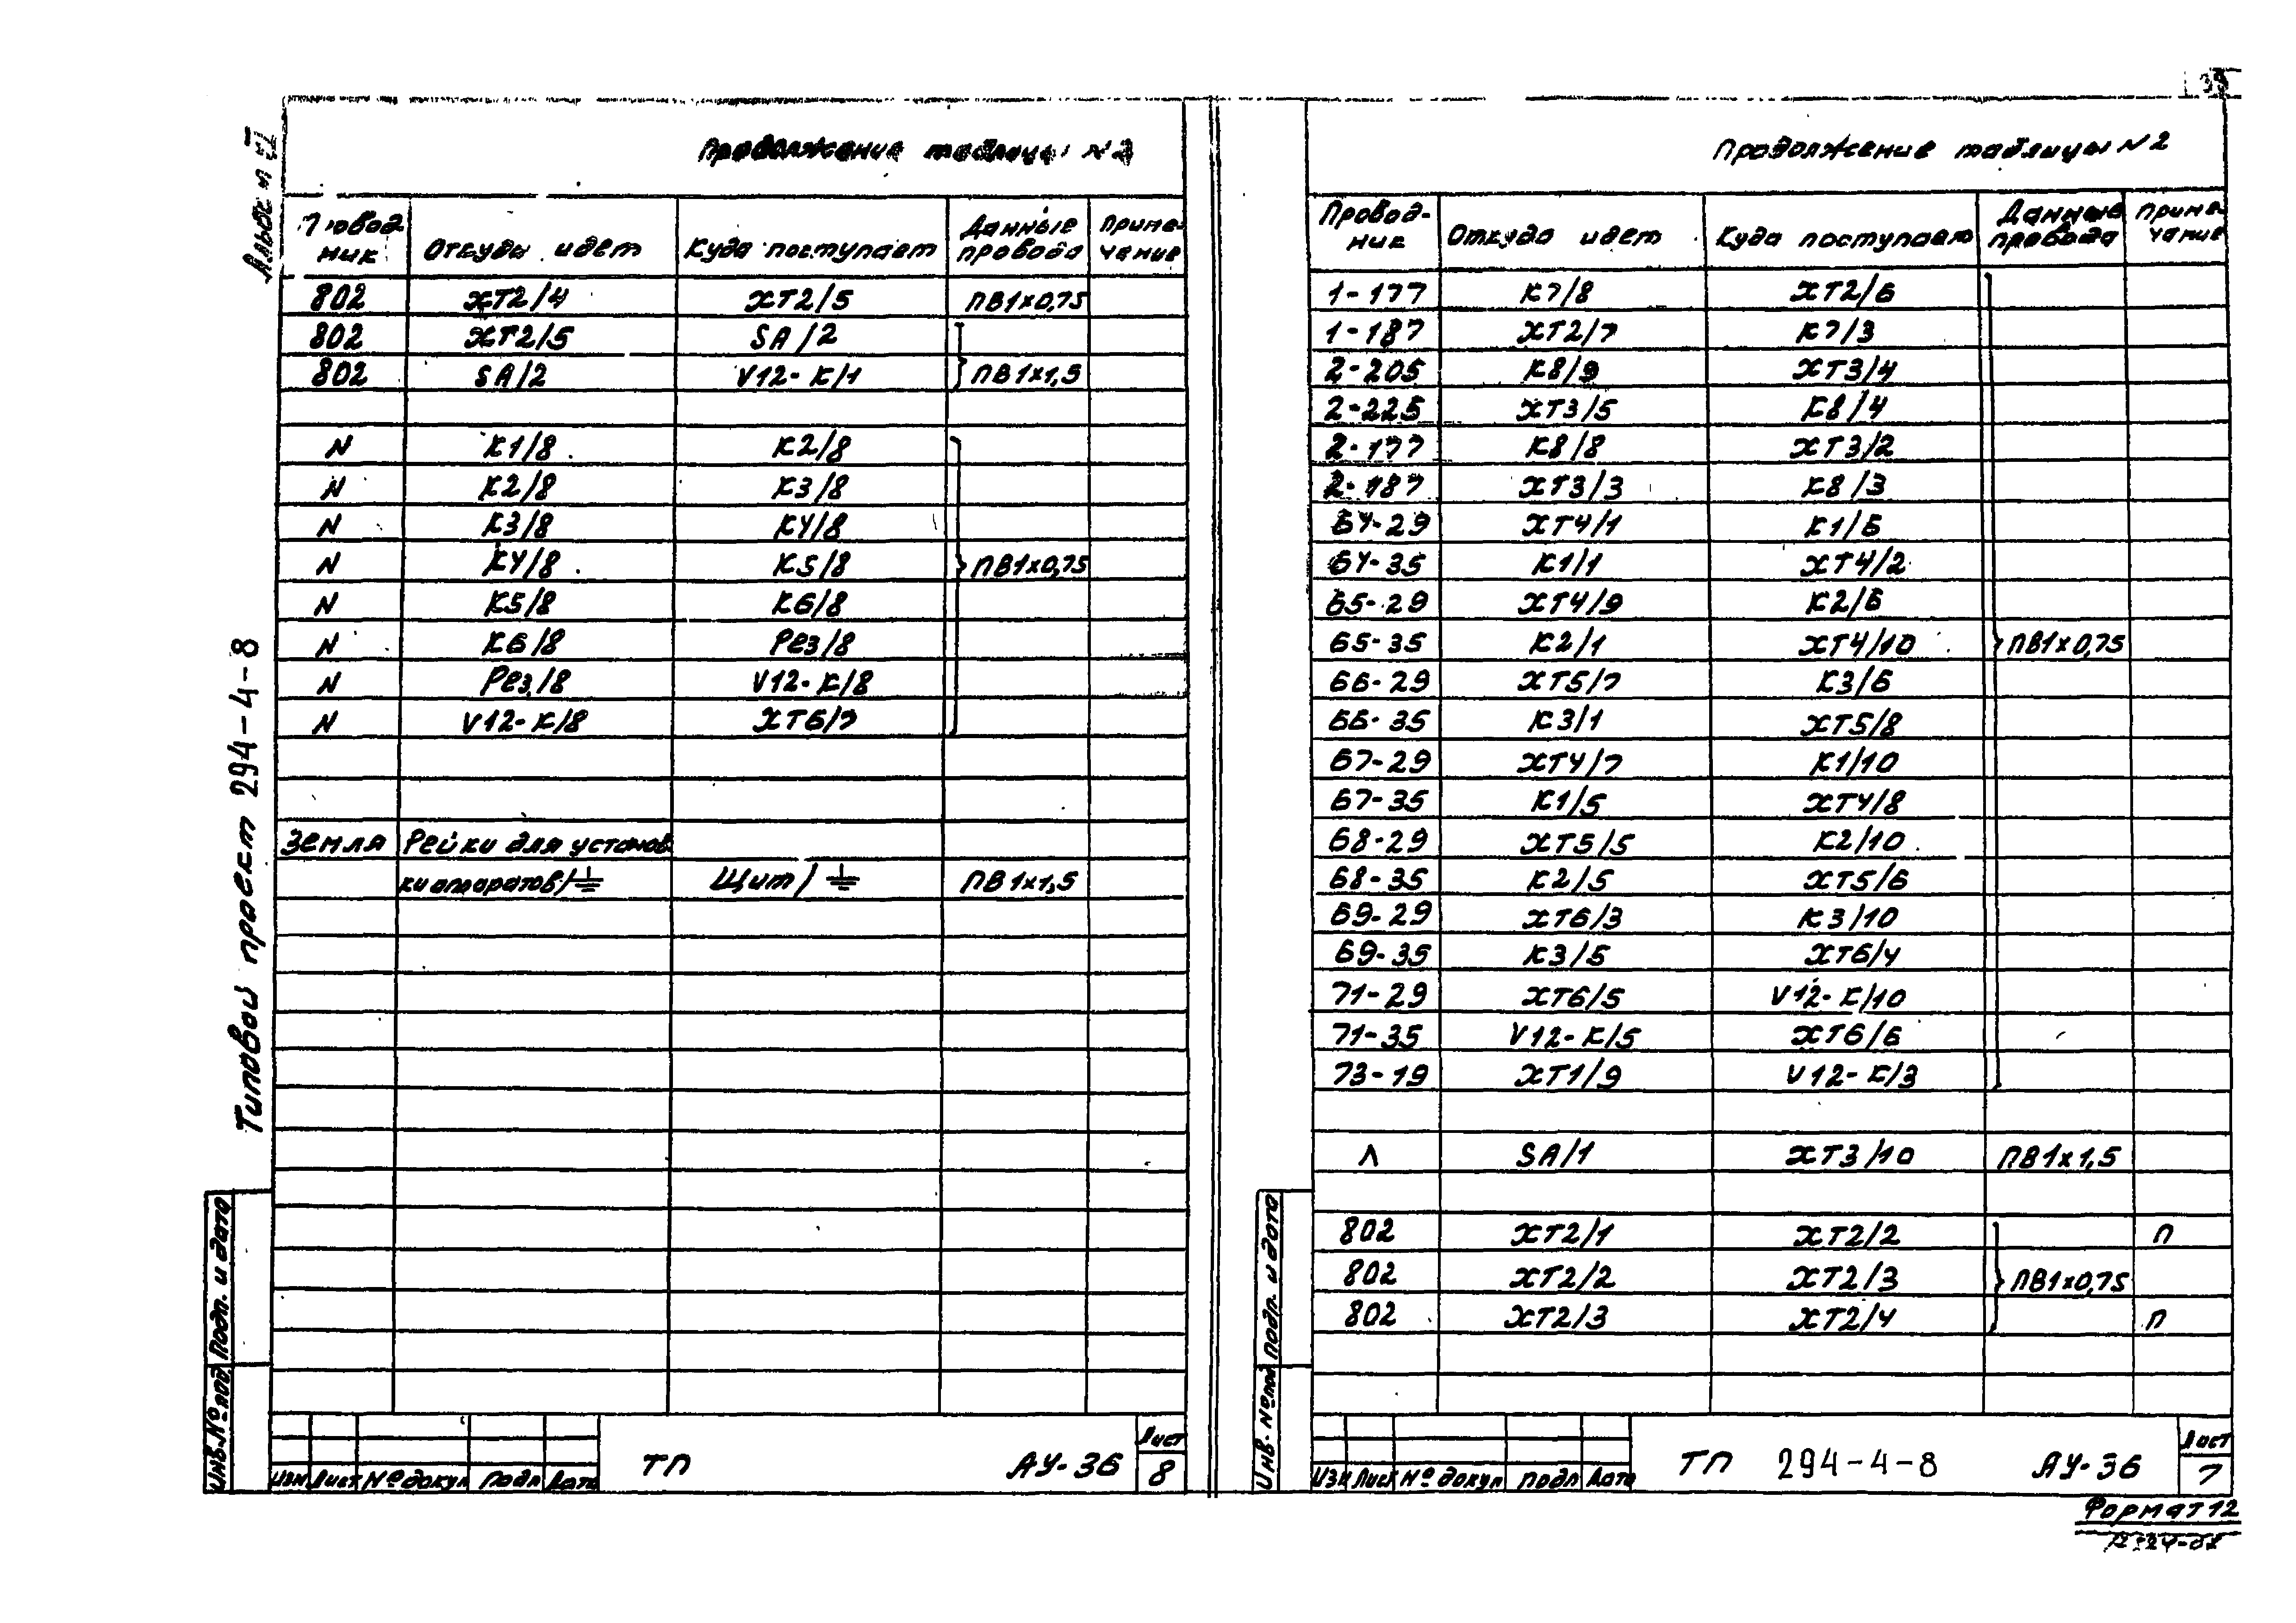 39
Альбом VI
Типовой проект 294-4-8
Продолжение таблицы N2
Провод- Откуда идет Куда поступает Данные Приме-
ник провода чание
802 XT2/4 XT2/5 ПВ1х0,75
802 XT2/5 SA/2
802 SA/2 V12-K/1 ПВ1х1,5
N K1/8 K2/8
N K2/8 K3/8
N K3/8 K4/8
N K4/8 K5/8 ПВ1х0,75
N K5/8 K6/8
N K6/8 Рез/8
N Рез/8 V12-K/8
N V12-K/8 XT6/7
Земля Рейки для установ
ки аппаратов/⏚ Щит/⏚ ПВ1х1,5
Инв.№под Подп. и дата
Изм Лист №докум подп Дата
ТП АУ-36 Лист
8
Продолжение таблицы N2
Провод- Откуда идет Куда поступает Данные Приме-
ник провода чание
1-177 K7/8 XT2/6
1-187 XT2/7 K7/3
2-205 K8/9 XT3/4
2-225 XT3/5 K8/4
2-177 K8/8 XT3/2
2-187 XT3/3 K8/3
64-29 XT4/1 K1/6
64-35 K1/1 XT4/2
65-29 XT4/9 K2/6
65-35 K2/1 XT4/10 ПВ1х0,75
66-29 XT5/7 K3/6
66-35 K3/1 XT5/8
67-29 XT4/7 K1/10
67-35 K1/5 XT4/8
68-29 XT5/5 K2/10
68-35 K2/5 XT5/6
69-29 XT6/3 K3/10
69-35 K3/5 XT6/4
71-29 XT6/5 V12-K/10
71-35 V12-K/5 XT6/6
73-19 XT1/9 V12-K/3
Л SA/1 XT3/10 ПВ1х1,5
802 XT2/1 XT2/2 П
802 XT2/2 XT2/3 ПВ1х0,75
802 XT2/3 XT2/4 П
Инв.№под Подп. и дата
Изм Лист №докум подп Дата
ТП 294-4-8 АУ-36 Лист
7
Формат 12